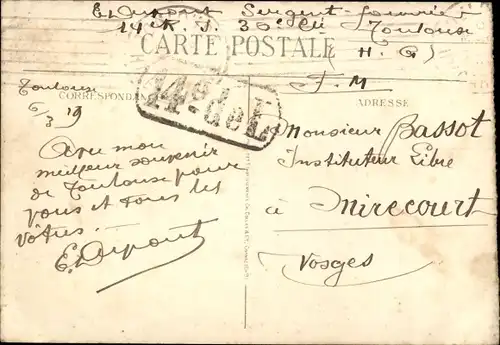 E. Dupont Sergent-fourrier
14e R. I. 36e Cie Toulouse
CARTE POSTALE
(H. G)
F. M
Toulouse
6/3 19
CORRESPONDANCE
ADRESSE
Avec mon
meilleur souvenir
de Toulouse pour
vous et tous les
vôtres.
E. Dupont
Monsieur Bassot
Instituteur Libre
à Mirecourt
Vosges